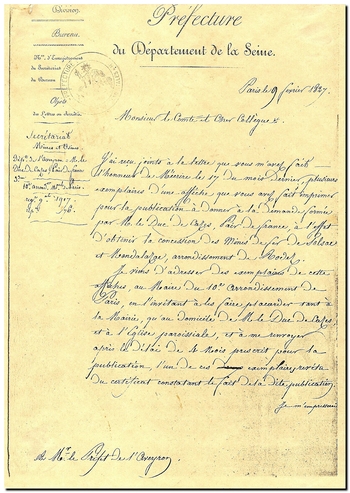 Préfecture
du Département de la Seine.
Division.
Bureau.
N.º d'Enregistrement
du Secrétariat
du Bureau
Objet
Secrétariat
Mines et Usines
Paris le 9 février 1827.
Monsieur le Comte et Cher Collègue
J'ai reçu, joints à la lettre que vous m'avez fait
l'honneur de m'écrire le 17 du mois dernier, plusieurs
exemplaires d'une affiche, que vous avez fait imprimer
pour la publication à donner à la demande formée
par M. le Duc de Cazes, Pair de france, à l'effet
d'obtenir la concession des Mines de fer de Solsac
et Mondalazac, arrondissement de Rodez.
Je viens d'adresser des exemplaires de cette
affiche, au Maire du 10e. arrondissement de
Paris, en l'invitant à les faire placarder tant à
la Mairie, qu'au domicile de M. le Duc de Cazes
et à l'Eglise paroissiale, et à me renvoyer
après le délai de 4 Mois prescrit pour la
publication, l'un de ces exemplaires, revêtu
du certificat constatant le fait de la dite publication.
Je m'empresserai
A Mr. le Préfet de l'Aveyron